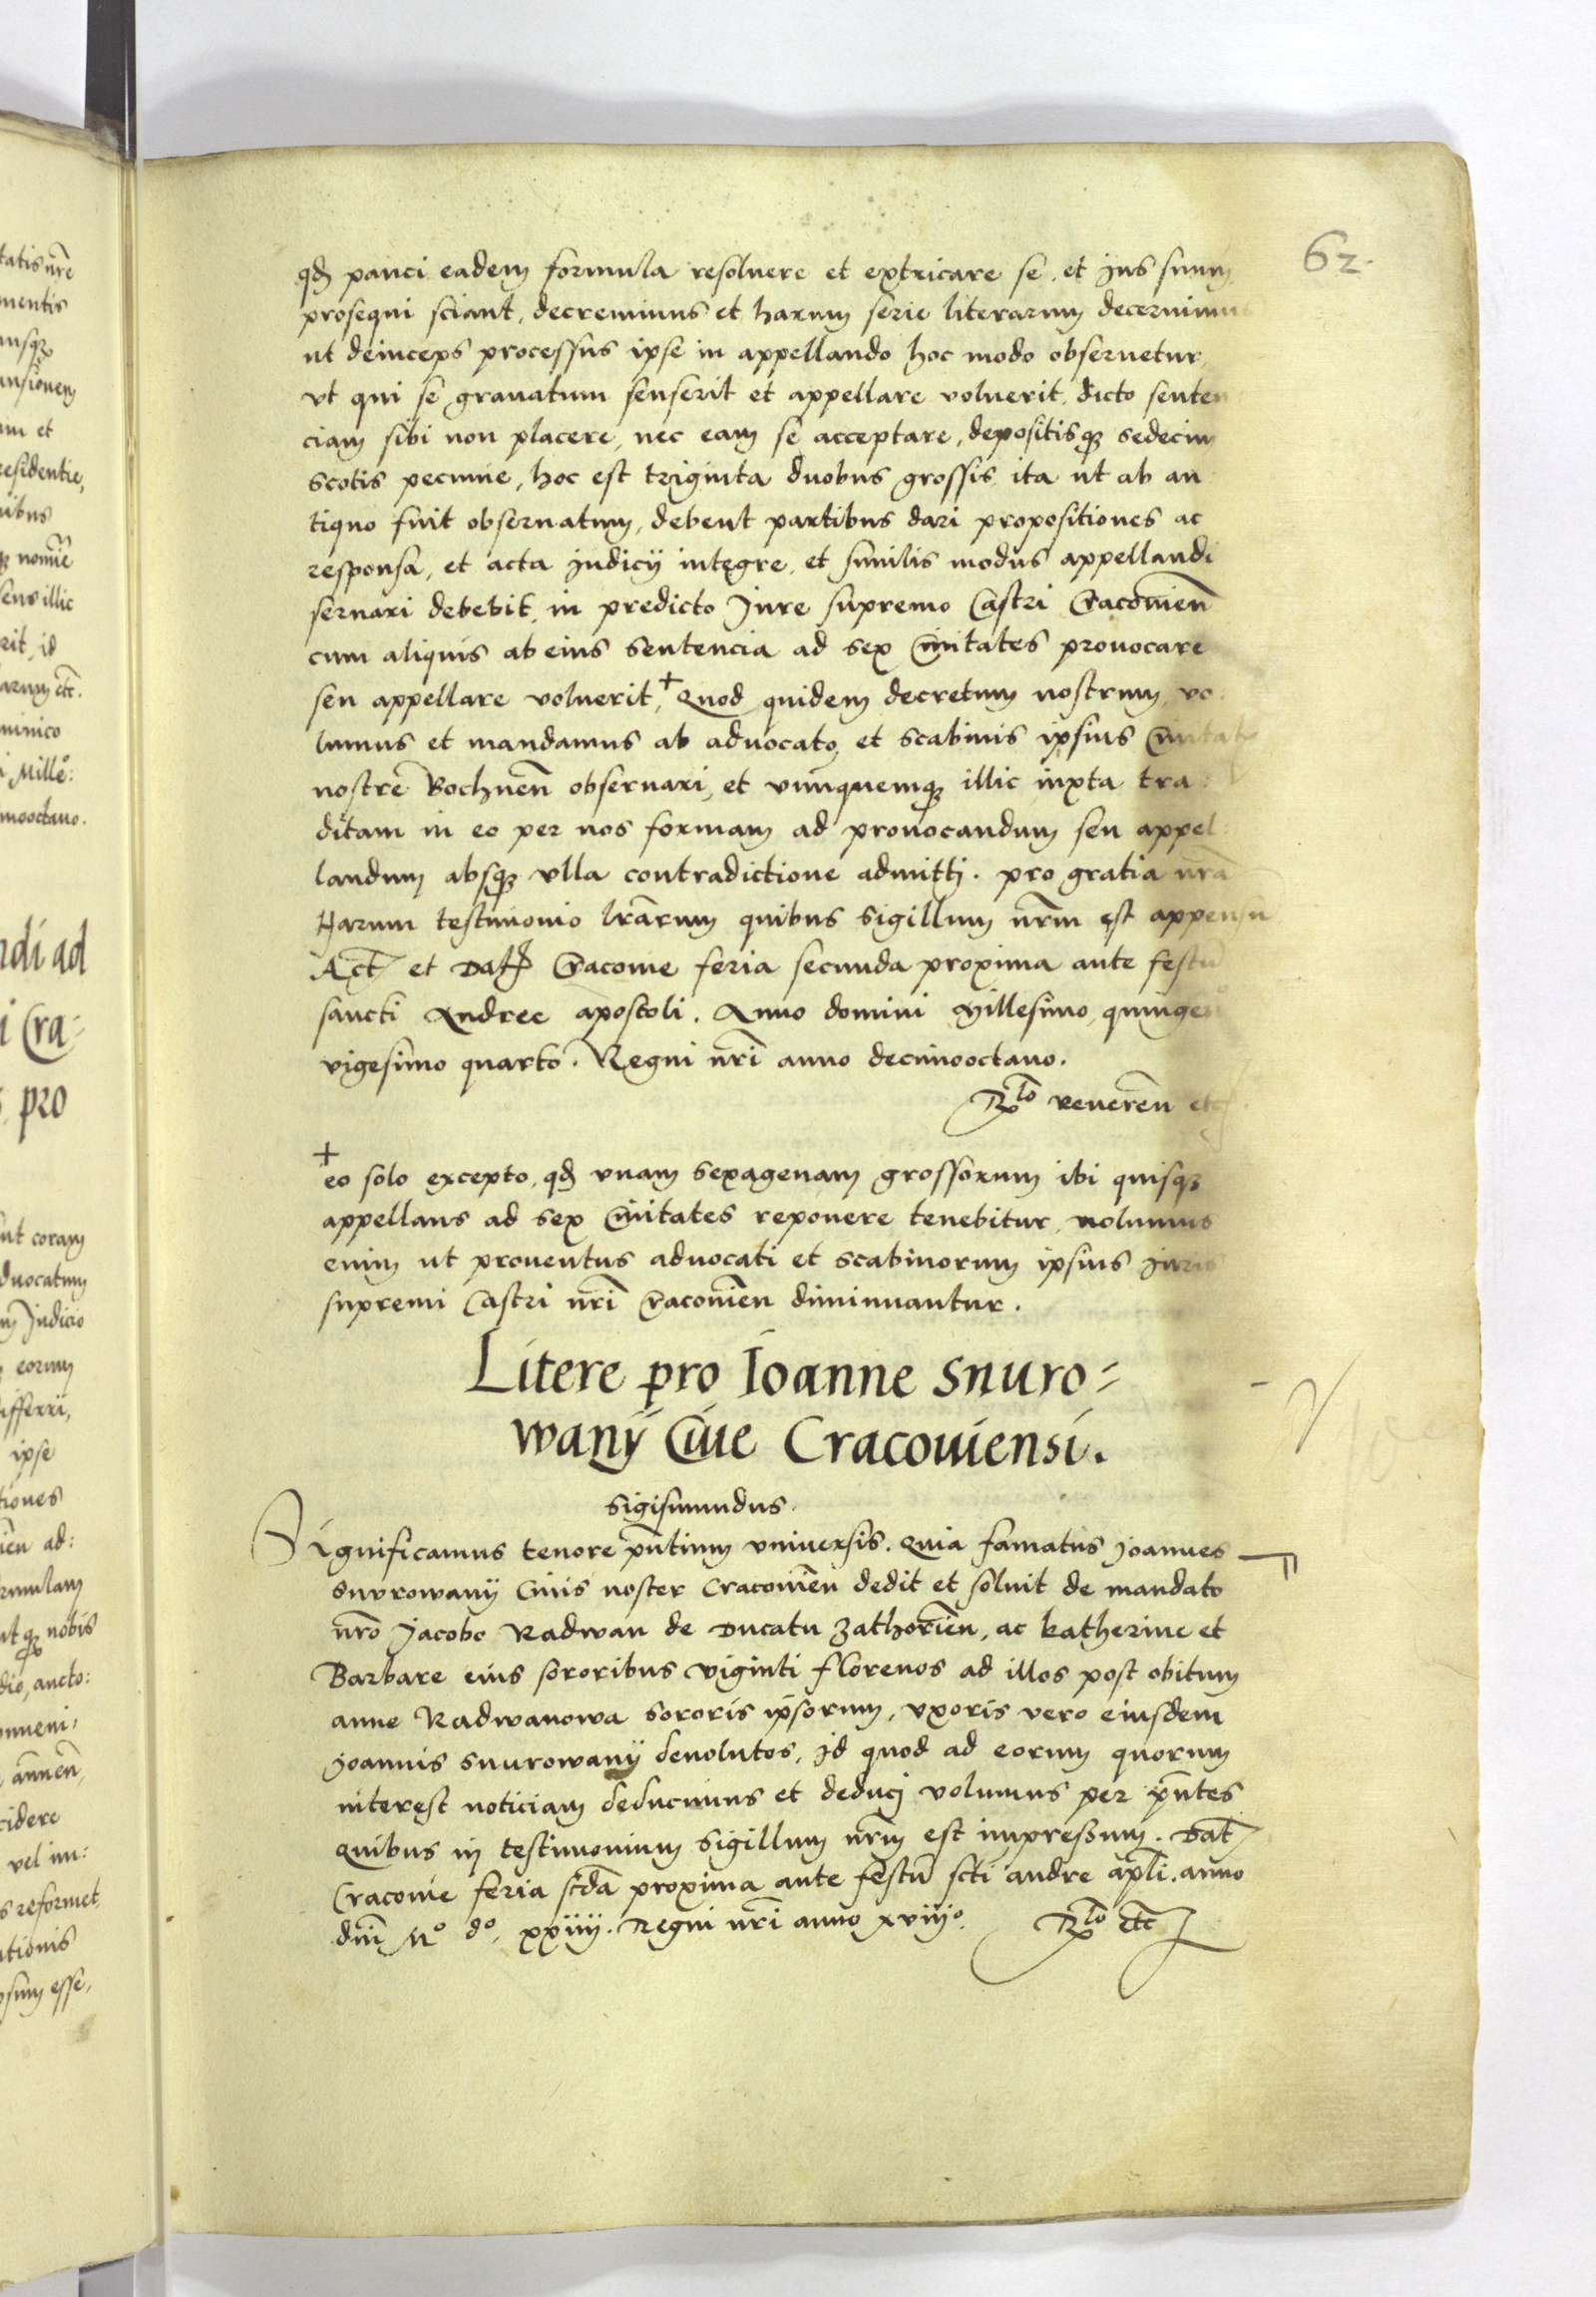 62.
qd pauci eadem formula resoluere et extricare se, et jus suum
prosequi sciant, decreuimus et harum serie literarum decernimus
ut deinceps processus ipse in appellando hoc modo obseruetur,
vt qui se grauatum senserit et appellare voluerit, dicto senten
ciam sibi non placere, nec eam se acceptare, depositisq; sedecim
scotis pecunie, hoc est triginta duobus grossis, ita ut ab an
tiquo fuit obseruatum, debent partibus dari propositiones ac
responsa, et acta judicij integre, et similis modus appellandi
seruari debebit, in predicto Jure supremo Castri Cracouien̄
cum aliquis ab eius sentencia ad sex Ciuitates prouocare
seu appellare voluerit,+ Quod quidem decretum nostrum, vo:
lumus et mandamus ab aduocato, et scabinis ipsius Ciuitatis
nostre Bochnen̄ obseruari, et vnumquemq; illic iuxta tra:
ditam in eo per nos formam ad prouocandum seu appel:
landum absq; vlla contradictione admitti. pro gratia nr̄a
Harum testimonio lr̄arum quibus sigillum nr̄m est appensū
Act̄ et Dat̄ Cracouie feria secunda proxima ante festū
sancti Andree apostoli. Anno domini Millesimo, quingen
vigesimo quarto. Regni nr̄i anno decimooctauo.
R̄to reueren̄ etc.
+
eo solo excepto, qd vnam sexagenam grossorum ibi quisq;
appellans ad sex Ciuitates reponere tenebitur, nolumus
enim ut prouentus aduocati et scabinorum ipsius Juris
supremi Castri nr̄i Cracouien̄ diminuantur.
Litere pro Ioanne Snuro=
wanÿ Ciue Cracouiensi.
Sigismundus.
Significamus tenore pn̄tium vniuersis. Quia famatus Joannes
Snurowanÿ Ciuis noster Cracouien̄ dedit et soluit de mandato
nr̄o Jacobo Radwan de Ducatu Zathorien̄, ac Katherine et
Barbare eius sororibus viginti florenos ad illos post obitum
anne Radwanowa sororis ipsorum, vxoris vero eiusdem
Joannis Snurowanÿ deuolutos, Id quod ad eorum quorum
interest noticiam deducimus et deduci volumus per pn̄tes
Quibus in testimonium Sigillum nr̄m est impressum. Dat̄
Cracouie feria scd̄a proxima ante festū scti andre apl̄i. anno
dn̄i Mº dº, xxiiij. Regni nr̄i anno xviijº. R̄to etc̄